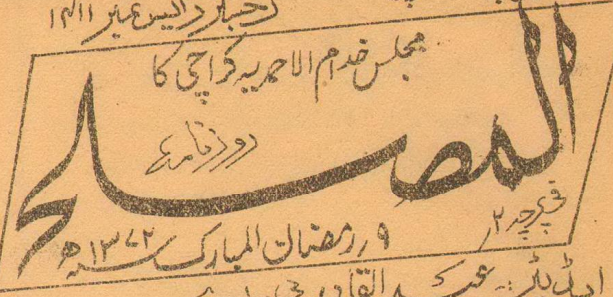 رجسٹرڈ ایس نمبر ۱۴۱۱
مجلس خدام الاحمدیہ کراچی کا
روزنامہ
المصلح
فی پرچہ ۲ر
۹ رمضان المبارک سنہ ۱۳۷۲ھ
ایڈیٹر :۔ عبد القادر